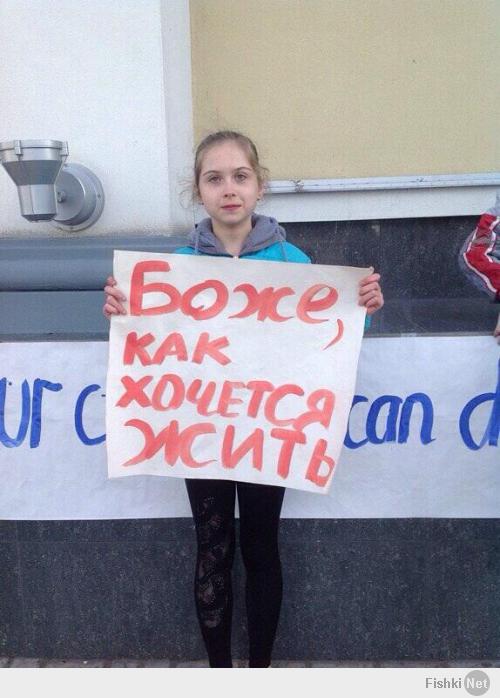 Боже,
как
хочется
жить
ur c can d
Fishki Net